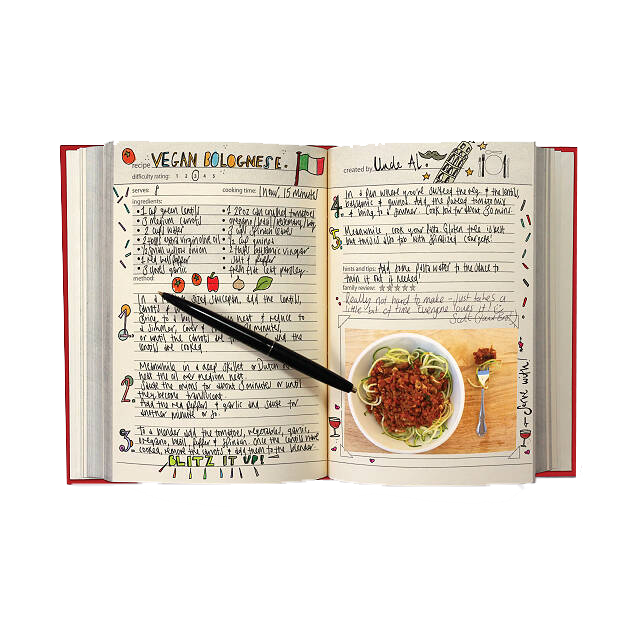 recipe VEGAN BOLOGNESE.
difficulty rating: 1 2 3 4 5
serves:
cooking time: 1 hour, 15 minutes
ingredients:
• 1 cup green lentils
• 3 medium carrots
• 2 cups water
• extra virgin olive oil
• ½ small yellow onion
• 1 red bell pepper
• 3 cloves garlic
• 1 28oz can crushed tomatoes
• 3 cups spinach leaves
• ½ cup quinoa
• balsamic vinegar
• salt & pepper
• fresh flat leaf parsley
method:
1
In a sized saucepan, add the lentils,
carrots &
bring to a boil heat & reduce to
a simmer, cover & minutes,
or until the carrots are and the
lentils are cooked.
2
Meanwhile in a deep skillet or Dutch
heat the oil over medium heat.
Saute the onions for about 5 minutes or until
they become translucent.
Add the red peppers & garlic and saute for
another minute or so.
3.
To a blender add the tomatoes, vegetables, garlic,
oregano, basil, pepper & spinach. Once the lentils have
cooked, remove the carrots & add them to the blender
BLITZ IT UP!
created by: Uncle Al.
4
In a pan where you've the veg & the lentils
balsamic & quinoa. Add the pureed tomato mix
& bring to a simmer. Cook for about 30 mins.
5
Meanwhile cook your pasta. Gluten free is best
but this is also good with spiralized courgette!
hints and tips: Add some pasta water to the sauce to
thin it out if needed!
family review:
Really not hard to make - just takes a
little bit of time. Everyone loves it!
Serve with!